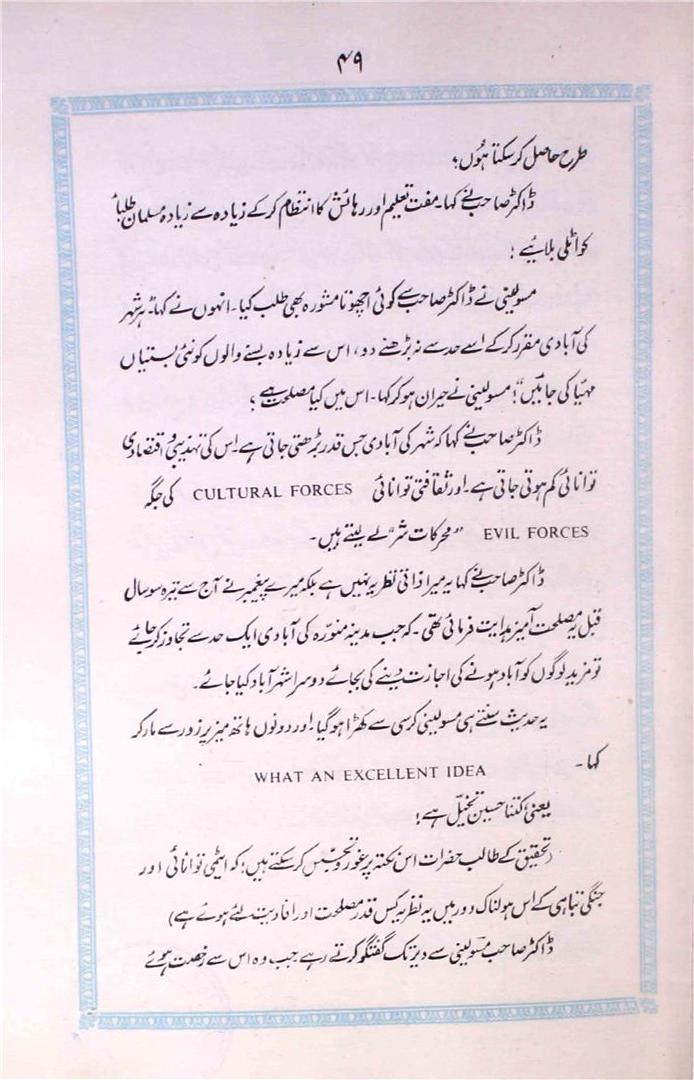 ۴۹
طرح حاصل کر سکتا ہُوں؟
ڈاکٹر صاحب نے کہا۔ مفت تعلیم اور رہائش کا انتظام کر کے زیادہ سے زیادہ مسلمان طلباء
کو اٹلی بلائیے !
مسولینی نے ڈاکٹر صاحب سے کوئی اچھوتا مشورہ بھی طلب کیا۔ انہوں نے کہا۔ ہر شہر
کی آبادی مقرر کر کے اسے حد سے نہ بڑھنے دو، اس سے زیادہ بسنے والوں کو نئی بستیاں
مہیّا کی جائیں"! مسولینی نے حیران ہو کر کہا۔ اس میں کیا مصلحت ہے ؟
ڈاکٹر صاحب نے کہا کہ شہر کی آبادی جس قدر بڑھتی جاتی ہے۔ اس کی تہذیبی و اقتصادی
توانائی کم ہوتی جاتی ہے۔ اور ثقافتی توانائی CULTURAL FORCES کی جگہ
EVIL FORCES "محرکات شر" لے لیتے ہیں۔
ڈاکٹر صاحب نے کہا یہ میرا ذاتی نظریہ نہیں ہے بلکہ میرے پیغمبر نے آج سے تیرہ سو سال
قبل یہ مصلحت آمیز ہدایت فرمائی تھی۔ کہ جب مدینہ منوّرہ کی آبادی ایک حد سے تجاوز کر جائے
تو مزید لوگوں کو آباد ہونے کی اجازت دینے کی بجائے دوسرا شہر آباد کیا جائے۔
یہ حدیث سنتے ہی مسولینی کرسی سے کھڑا ہو گیا۔ اور دونوں ہاتھ میز پر زور سے مار کر
کہا۔ WHAT AN EXCELLENT IDEA
یعنی؛ کتنا حسین تخیّل ہے!
(تحقیق کے طالب حضرات اس نکتہ پر غور و تجسّس کر سکتے ہیں؛ کہ ایٹمی توانائی اور
جنگی تباہی کے اس ہولناک دور میں یہ نظریہ کس قدر مصلحت اور افادیت لئے ہوئے ہے)
ڈاکٹر صاحب مسولینی سے دیر تک گفتگو کرتے رہے جب وہ اس سے رخصت ہوئے